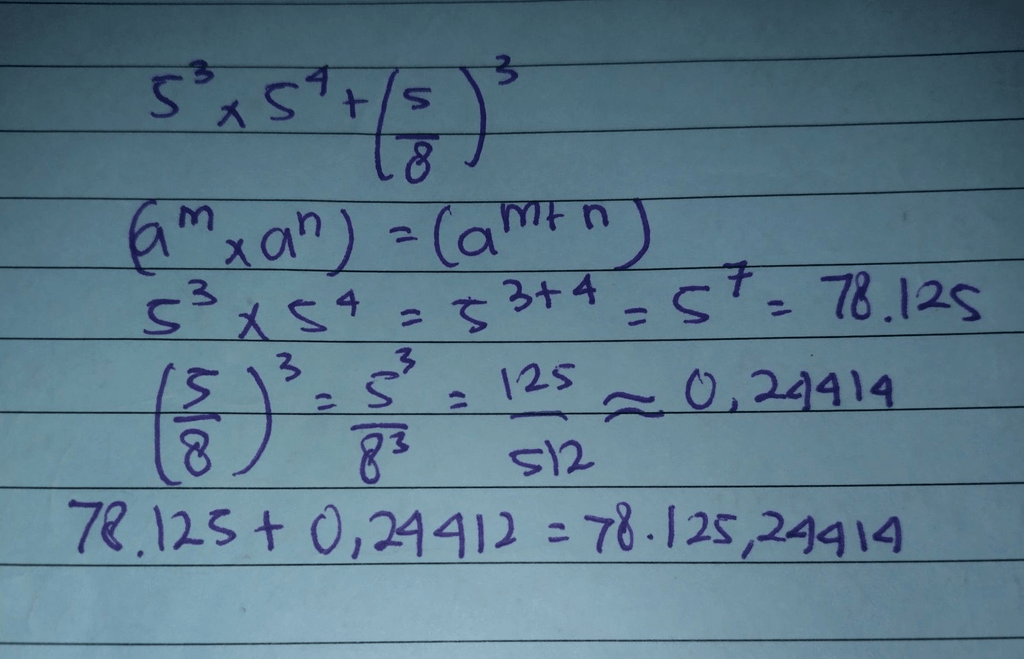 5³ x 5⁴ + (5/8)³
(aᵐ x aⁿ) = (aᵐ⁺ⁿ)
5³ x 5⁴ = 5³⁺⁴ = 5⁷ = 78.125
(5/8)³ = 5³/8³ = 125/512 ≈ 0,24414
78.125 + 0,24412 = 78.125,24414